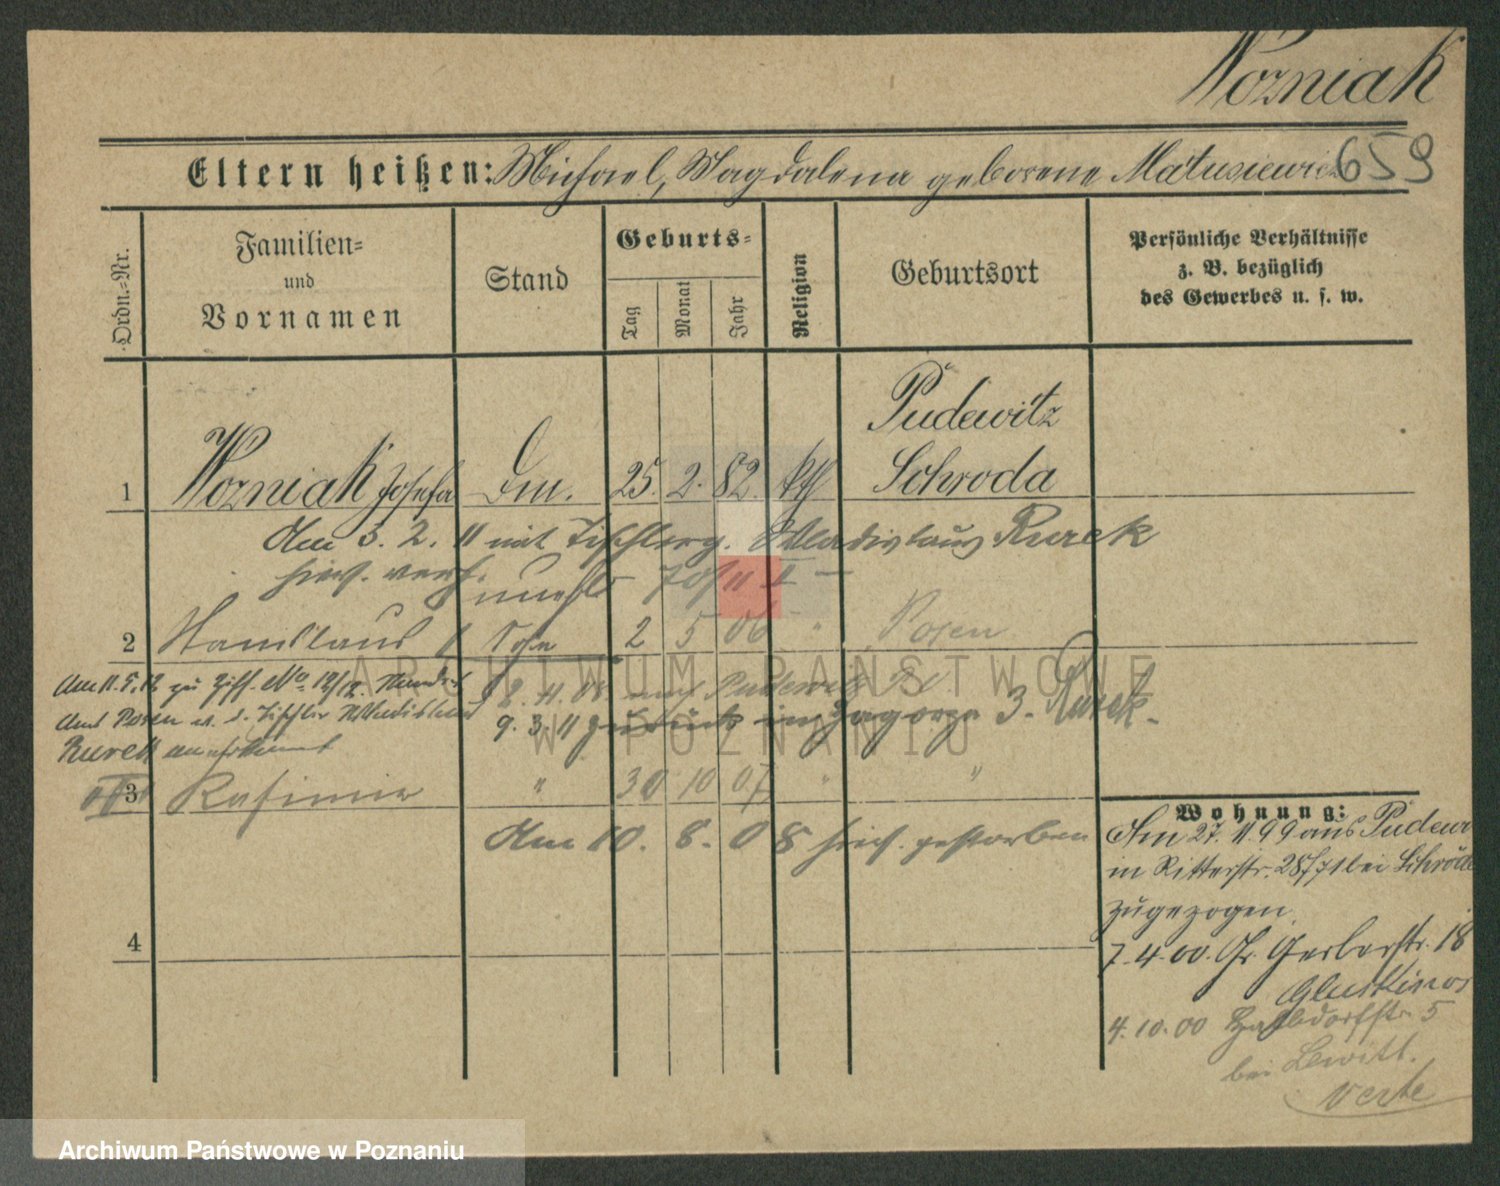 Wozniak
659
Eltern heißen: Michael, Magdalena geborene Matusiewicz
Ordn.-Nr.
Familien-
und
Vornamen
Stand
Geburts-
Tag
Monat
Jahr
Religion
Geburtsort
Persönliche Verhältnisse
z. B. bezüglich
des Gewerbes u. s. w.
Pudewitz
1 Wozniak Josefa Dm. 25. 2. 82. kth Schroda
Am 3. 2. 11 mit Tischlerg. Wladislaus Rurek
hies. verh.
2 Stanislaus Sohn 2 5 06 " Posen
Am 11.5.12 zu Ziff. No. 12/12 Standes
8.11.08 nach Pudewitz
Amt Posen v. d. Tischler Wladislaus
9.3.11 zurück 3. Rurek.
Rurek anerkannt
3 Kasimir " 30 10 07 " "
Am 10. 8. 08 hies. gestorben
4
Wohnung:
Am 27.11.99 aus Pudew
in Ritterstr. 28/71 bei Schröd
zugezogen.
7.4.00. Gr. Gerberstr. 18
4.10.00 5
bei Lewitt.
verte
ARCHIWUM PAŃSTWOWE
W POZNANIU
Archiwum Państwowe w Poznaniu